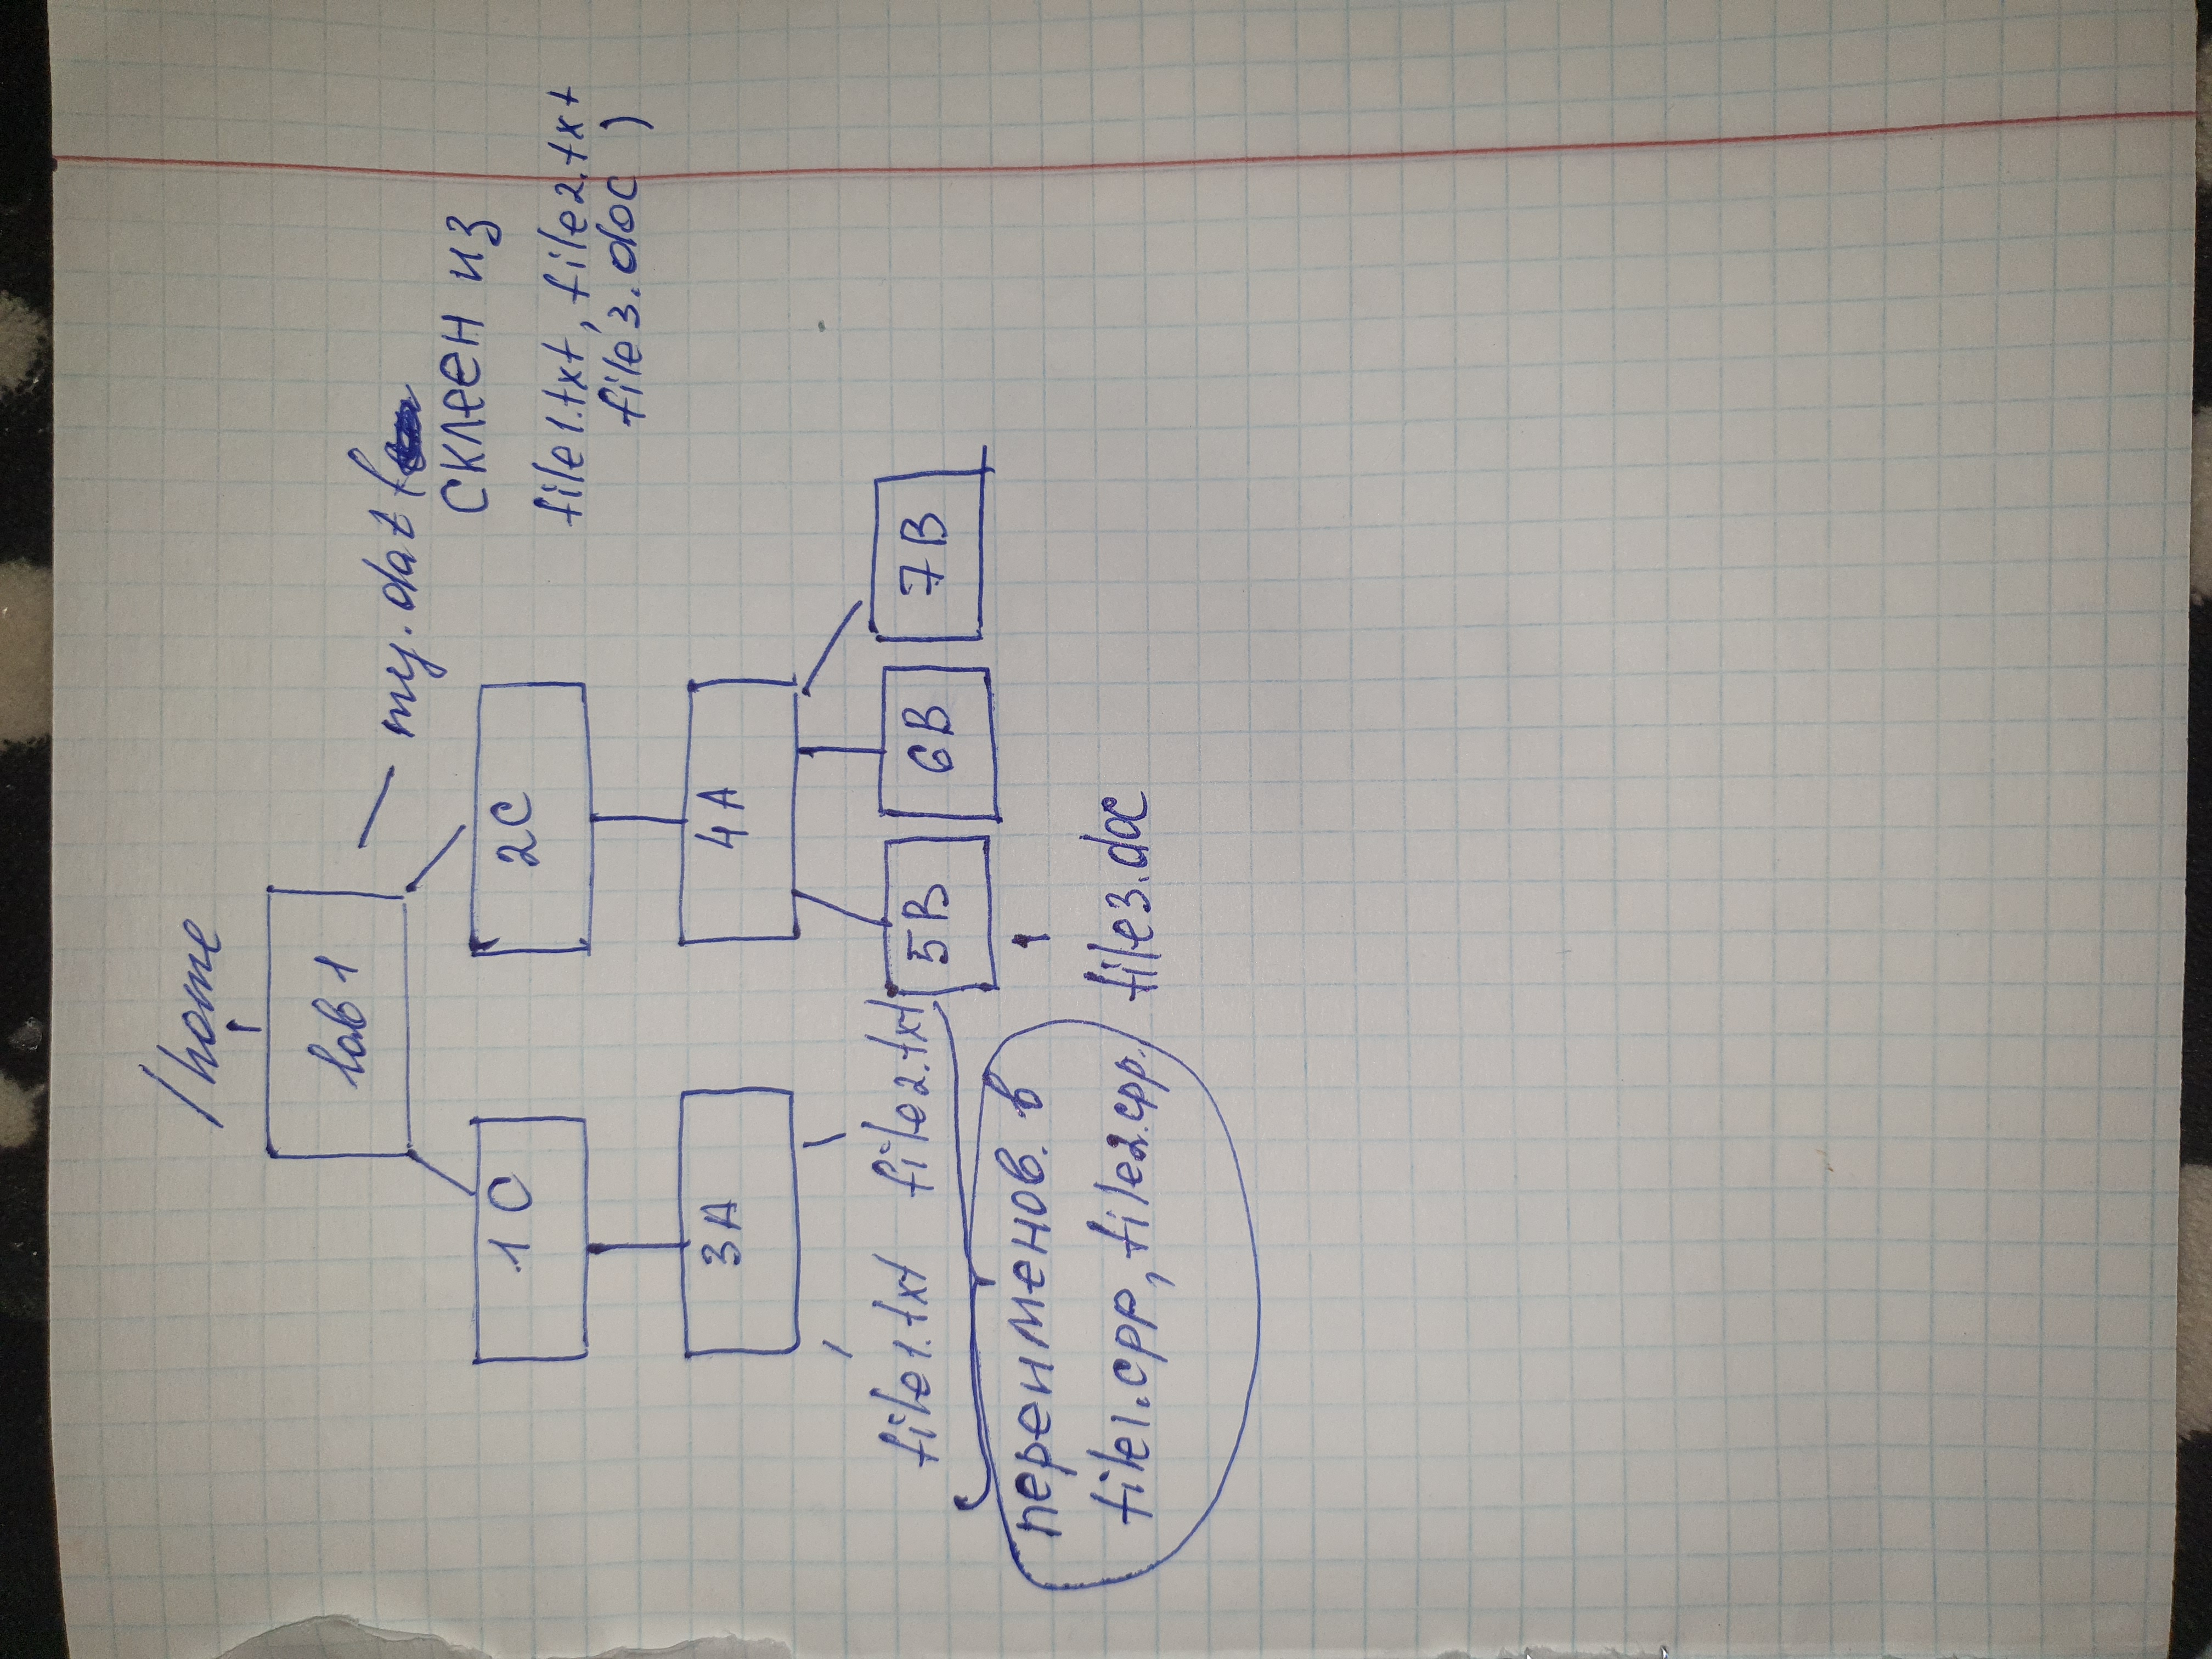 /home
lab 1
my.dat (
склеен из
file1.txt, file2.txt
file3.doc )
1C
2C
3A
4A
file1.txt
file2.txt
5B
6B
7B
переименов. в
file1.cpp, file2.cpp.
file3.doc